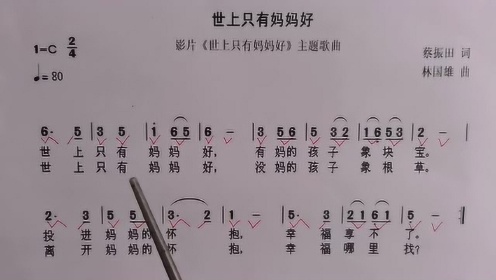 世上只有妈妈好
1=C 2/4
影片《世上只有妈妈好》主题歌曲
蔡振田 词
♩=80
林国雄 曲
6· 5 | 3 5 | i 6 5 | 6 - | 5 3 2 | 1 6 5 3 | 2 - |
世 上 只 有 妈 妈 好, 有 妈 的 孩 子 象 块 宝。
世 上 只 有 妈 妈 好, 没 妈 的 孩 子 象 根 草。
2· 3 | 5 5 | 3· 2 | 1 - | 5· 3 | 2 1 6 1 | 5 -
投 进 妈 妈 的 怀 抱, 幸 福 享 不 了。
离 开 妈 妈 的 怀 抱, 幸 福 哪 里 找?